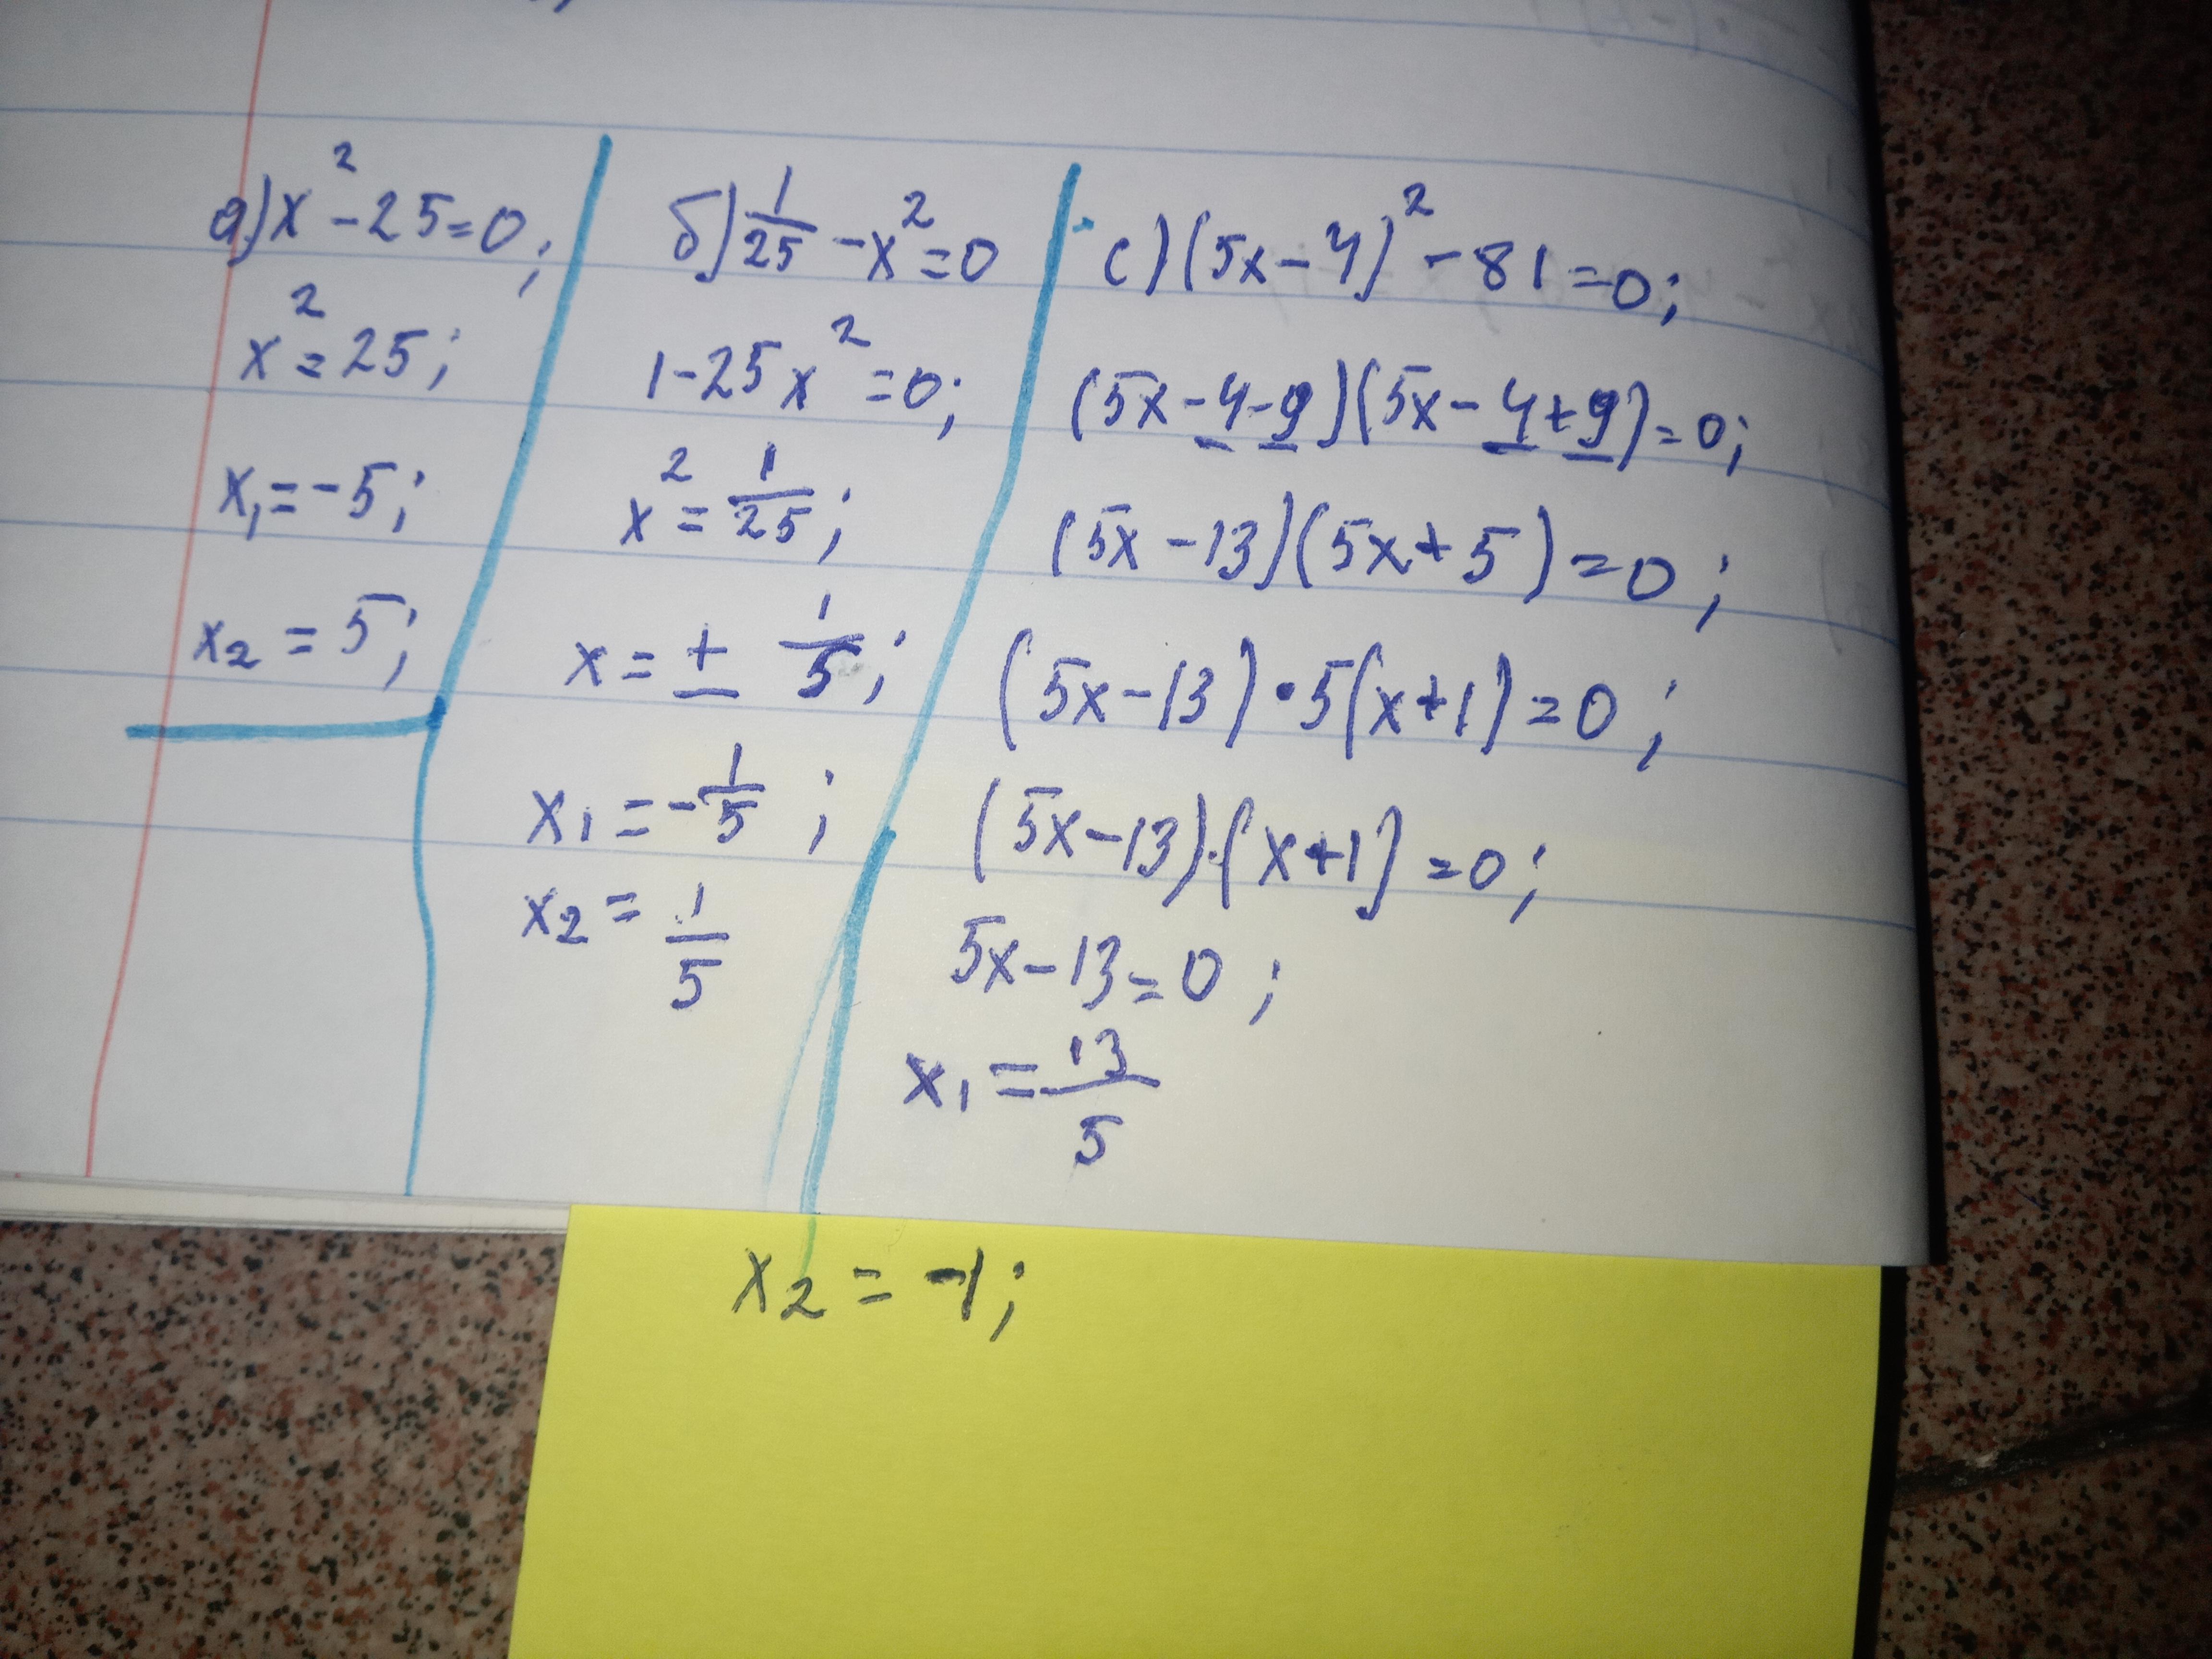 а) x² - 25 = 0;
x² = 25;
x₁ = -5;
x₂ = 5;
б) 1/25 - x² = 0
1 - 25x² = 0;
x² = 1/25;
x = ± 1/5;
x₁ = -1/5;
x₂ = 1/5
c) (5x - 4)² - 81 = 0;
(5x - 4 - 9)(5x - 4 + 9) = 0;
(5x - 13)(5x + 5) = 0;
(5x - 13) • 5(x + 1) = 0;
(5x - 13) · (x + 1) = 0;
5x - 13 = 0;
x₁ = 13/5
x₂ = -1;